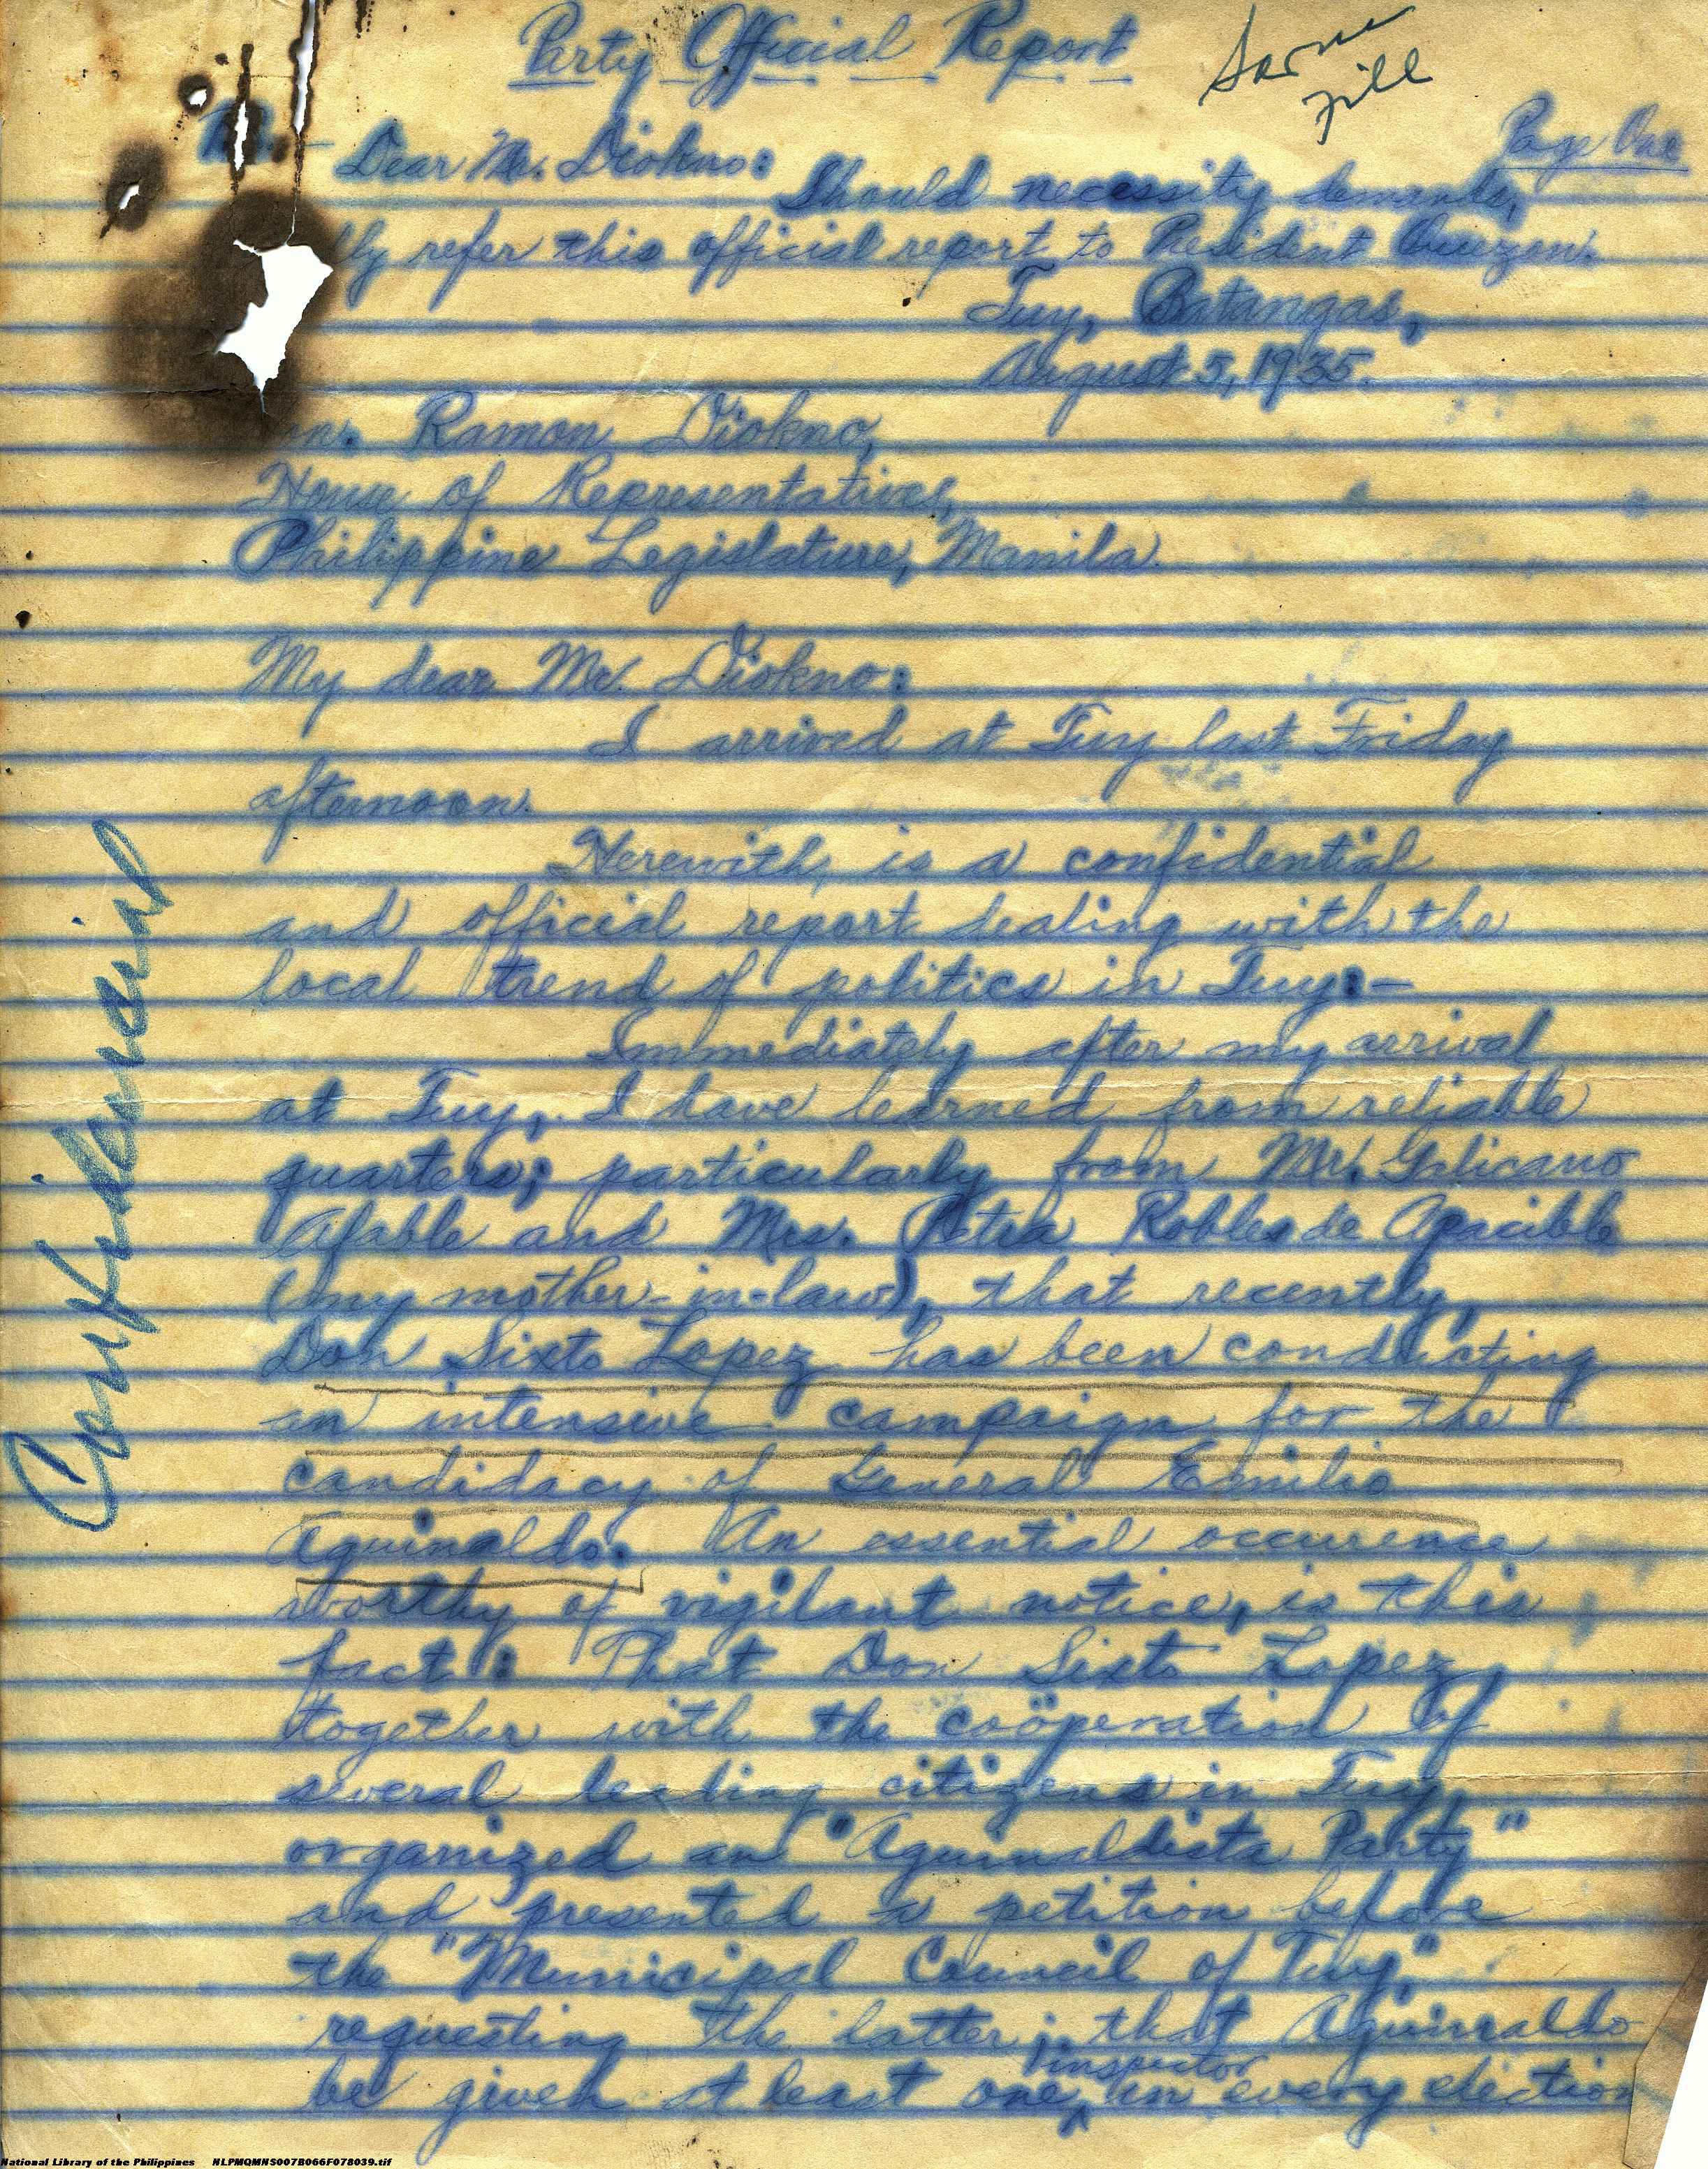 Party Official Report
Page One
Dear Mr. Diokno:
Should necessity demands,
refer this official report to President Quezon.
Tuy, Batangas,
August 5, 1935.
Ramon Diokno,
House of Representatives,
Philippine Legislature, Manila.
My dear Mr. Diokno:
I arrived at Tuy last Friday
afternoon.
Herewith, is a confidential
and official report dealing with the
local trend of politics in Tuy:-
Immediately after my arrival
at Tuy, I have learned from reliable
quarters; particularly from Mr. Galicano
Afable and Mrs. Petra Robles de Apacible
(my mother-in-law), that recently,
Don Sixto Lopez has been conducting
an intensive campaign for the
candidacy of General Emilio
Aguinaldo. An essential occurence
worthy of vigilant notice, is this
fact: That Don Sixto Lopez,
together with the coöperation of
several leading citizens in Tuy,
organized an "Aguinaldista Party"
and presented a petition before
the "Municipal Council of Tuy,"
requesting the latter; that Aguinaldo
be given at least one inspector in every election
Confidencial
National Library of the Philippines NLPMQMNS007B066F078039.tif